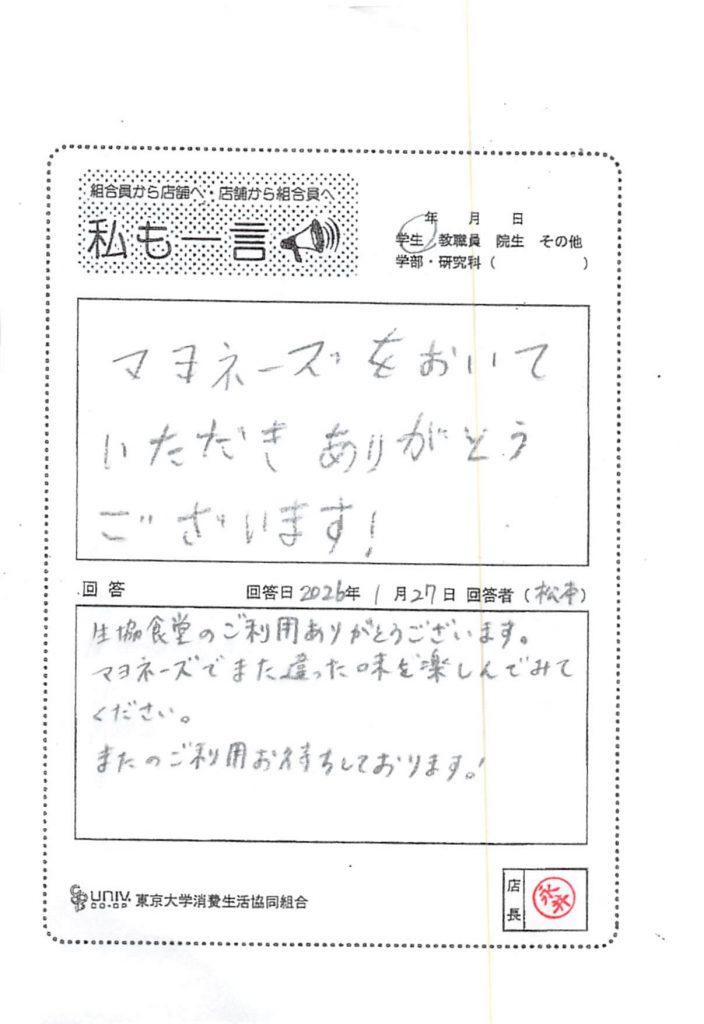 組合員から店舗へ・店舗から組合員へ
私も一言
年 月 日
学生 教職員 院生 その他
学部・研究科( )
マヨネーズをおいて
いただきありがとう
ございます!
回答 回答日 2026年 1月27日 回答者(松本)
生協食堂のご利用ありがとうございます。
マヨネーズでまた違った味を楽しんでみて
ください。
またのご利用お待ちしております。!
UNIV. CO-OP 東京大学消費生活協同組合
店長